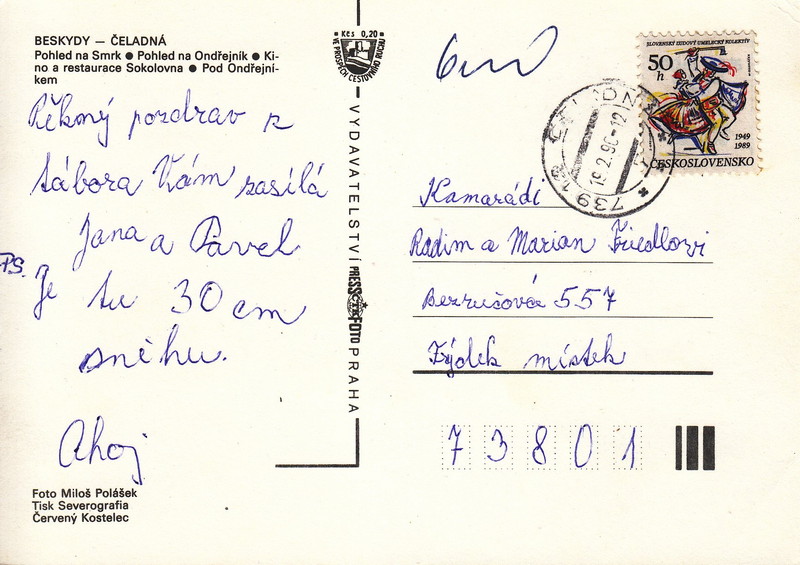 BESKYDY – ČELADNÁ
Pohled na Smrk ● Pohled na Ondřejník ● Ki-
no a restaurace Sokolovna ● Pod Ondřejní-
kem
Kčs 0,20
VE PROSPĚCH CESTOVNÍHO RUCHU
Pěkný pozdrav z
tábora Vám zasílá
Jana a Pavel
P.S.
Je tu 30 cm
sněhu.
Ahoj
Foto Miloš Polášek
Tisk Severografia
Červený Kostelec
VYDAVATELSTVÍ PRESSFOTO PRAHA
SLOVENSKÝ ĽUDOVÝ UMELECKÝ KOLEKTÍV
50
h
1949
1989
ČESKOSLOVENSKO
19.2.90-12
739 12
Kamarádi
Radim a Marian Friedlovi
Bezručova 557
Frýdek místek
73801